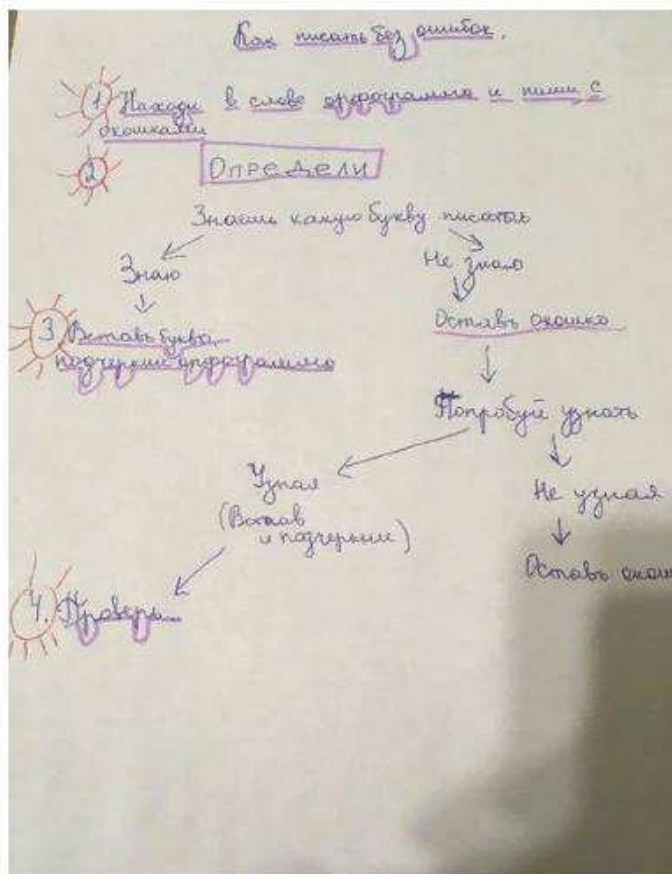 Как писать без ошибок.
1 Находи в слове орфограммы и пиши с
окошками
2 Определи
Знаешь какую букву писать
Знаю
Не знаю
3 Вставь букву
подчеркни орфограмму
Оставь окошко
Попробуй узнать
Узнал
(Встав
и подчеркни)
Не узнал
Оставь окош
4. Проверь